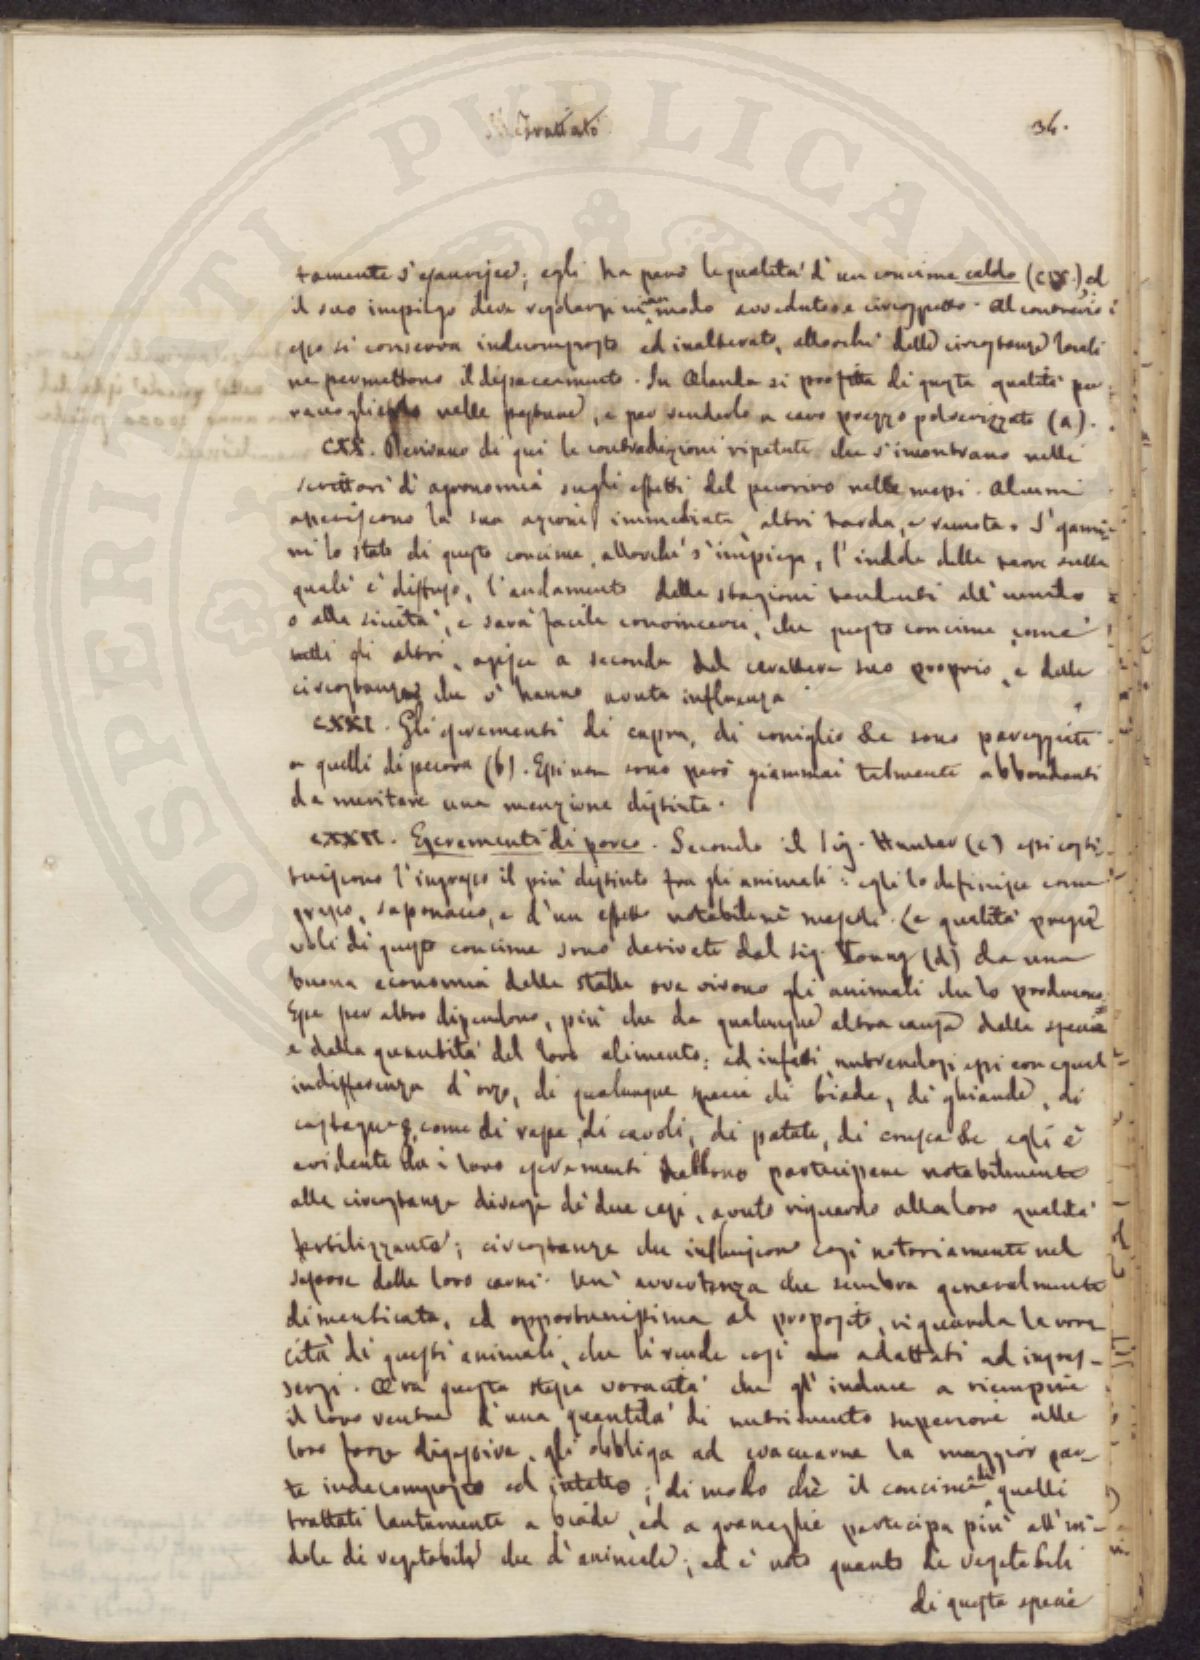 Trattato
34.
tamente s'esaurisce; egli ha però le qualità d'un concime caldo (CIX.), ed
il suo impiego deve regolarsi in modo avveduto e circospetto. Al contrario
esso si conserva indecomposto ed inalterato, allorchè delle circostanze locali
ne permettono il disseccamento. In Olanda si profitta di questa qualità per
raccoglierlo nelle pasture, e per venderlo a caro prezzo polverizzato (a).
CXX. Derivano di qui le contradizioni ripetute che s'incontrano nelli
scrittori d'agronomia sugli effetti del pecorino nelle messi. Alcuni
asseriscono la sua azione immediata, altri tarda, e remota. S'esami-
ni lo stato di questo concime, allorchè s'impiega, l'indole delle terre sulle
quali è diffuso, l'andamento delle stagioni tendenti all'umido
o alla siccità, e sarà facile convincerci, che questo concime come
tutti gli altri, agisce a seconda del carattere suo proprio, e delle
circostanze che v'hanno avuta influenza.
CXXI. Gli escrementi di capra, di coniglio &c sono pareggiati
a quelli di pecora (b). Essi non sono però giammai talmente abbondanti
da meritare una menzione distinta.
CXXII. Escrementi di porco. Secondo il Sig. Hunter (c) essi costi-
tuiscono l'ingrasso il più distinto fra gli animali: egli lo definisce come
grasso, saponaceo, e d'un effetto notabile nè mesch. Le qualità
di questo concime sono derivate dal Sig. Young (d) da una
buona economia delle stalle ove vivono gli animali che lo producono.
Esse per altro dipendono, più che da qualunque altra causa dalla specie
e dalla quantità del loro alimento: ed infatti nutrendosi essi con egual
indifferenza d'orzo, di qualunque specie di biade, di ghiande, di
castagne, come di rape, di cavoli, di patate, di crusca &c egli è
evidente che i loro escrementi debbono partecipare notabilmente
alle circostanze diverse di due cose, avuto riguardo alla loro qualità
fertilizzante; circostanze che influiscon così notoriamente nel
sapore delle loro carni. Un'avvertenza che sembra generalmente
dimenticata, ed opportunissima al proposito, riguarda la vora-
cità di questi animali, che li rende così adattati ad ingras-
sarsi. Ora questa stessa voracità che gl'induce a riempire
il loro ventre d'una quantità di nutrimento superiore alle
loro forze digestive, gli obbliga ad evacuarne la maggior par-
te indecomposto ed intatto; di modo chè il concime di quelli
trattati lautamente a biade, ed a granaglie partecipa più all'in-
dole di vegetabile che d'animale; ed è noto quanto le vegetabili
di questa specie